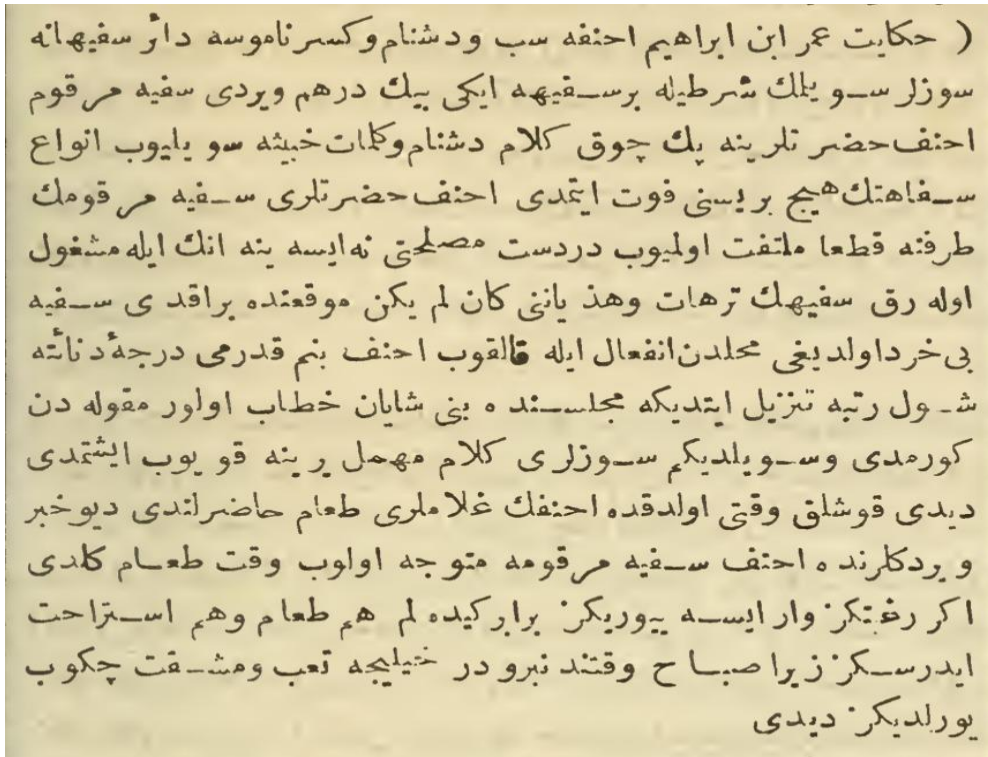 ( حكايت عمر ابن ابراهيم احنفه سب ودشنام وكسر ناموسه دائر سفيهانه
سوزلر سويلمك شرطيله برسفيهه ايكى بيك درهم ويردى سفيه مرقوم
احنف حضرتلرينه پك چوق كلام دشنام وكلمات خبيثه سويليوب انواع
سفاهتك هيچ بريسنى فوت ايتمدى احنف حضرتلرى سفيه مرقومك
طرفنه قطعا ملتفت اولميوب دردست مصلحتى نه ايسه ينه انك ايله مشغول
اوله رق سفيهك ترهات وهذياننى كان لم يكن موقعنده براقدى سفيه
بى خرد اولديغى محلدن انفعال ايله قالقوب احنف بنم قدرمى درجۀ دنائته
شول رتبه تنزيل ايتديكه مجلسنده بنى شايان خطاب اولور مقوله دن
كورمدى وسويلديكم سوزلرى كلام مهمل يرينه قويوب ايشتمدى
ديدى قوشلق وقتى اولدقده احنفك غلاملرى طعام حاضرلندى ديو خبر
ويردكلرنده احنف سفيه مرقومه متوجه اولوب وقت طعام كلدى
اكر رغبتكز وار ايسه بيوريكز برابر كيده لم هم طعام وهم استراحت
ايدرسكز زيرا صباح وقتندنبرودر خيليجه تعب ومشقت چكوب
يورلديكز ديدى